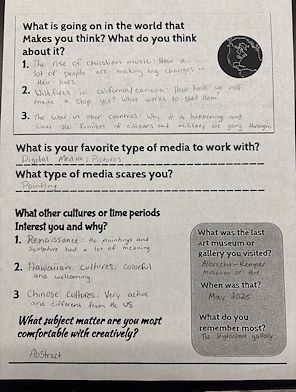 What is going on in the world that
Makes you think? What do you think
about it?
1. The rise of christian music: How a
lot of people are making big changes in
their lives.
2. Wildfires in california/canada: How have we not
made a stop yet? What works to stop them?
3. The war in other countries: Why it is happening and
what the families of citizens and military are going through
What is your favorite type of media to work with?
Digital Media: Pictures
What type of media scares you?
Painting
What other cultures or time periods
Interest you and why?
1. Renaissance: the paintings and
sculpture had a lot of meaning
2. Hawaiian cultures; colorful
and welcoming
3 Chinese Cultures: Very active
and different from the US
What subject matter are you most
comfortable with creatively?
Abstract
What was the last
art museum or
gallery you visited?
Albrecht-Kemper
Museum of Art
When was that?
May 2025
What do you
remember most?
The Highschool gallery